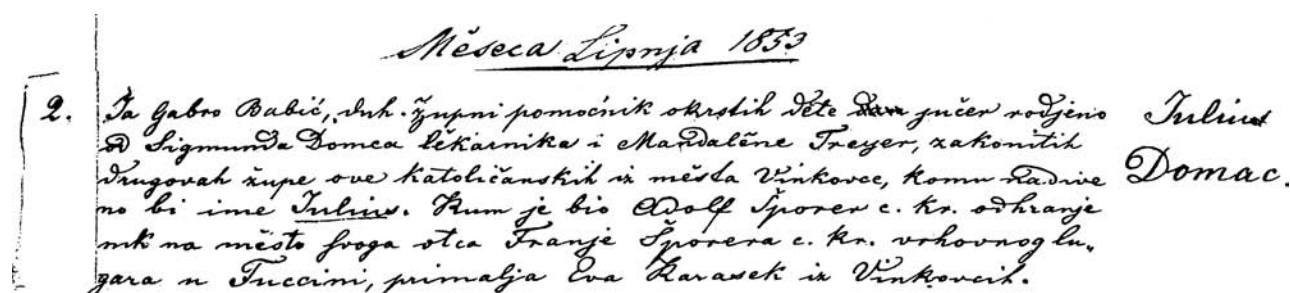 Měseca Lipnja 1853
2. Ja Gabro Babić, duh. župni pomoćnik okrstih děte jučer rodjeno
od Sigmunda Domca lěkarnika i Mandalěne Freyer, zakonitih
drugovah župe ove katoličanskih iz města Vinkovce, komu nadive
no bi ime Julius. Kum je bio Adolf Šporer c. kr. odhranje
nik na město svoga otca Franje Šporera c. kr. vrhovnog lu„
gara u Fuccini, primalja Eva Karasek iz Vinkovcih.
Julius
Domac.